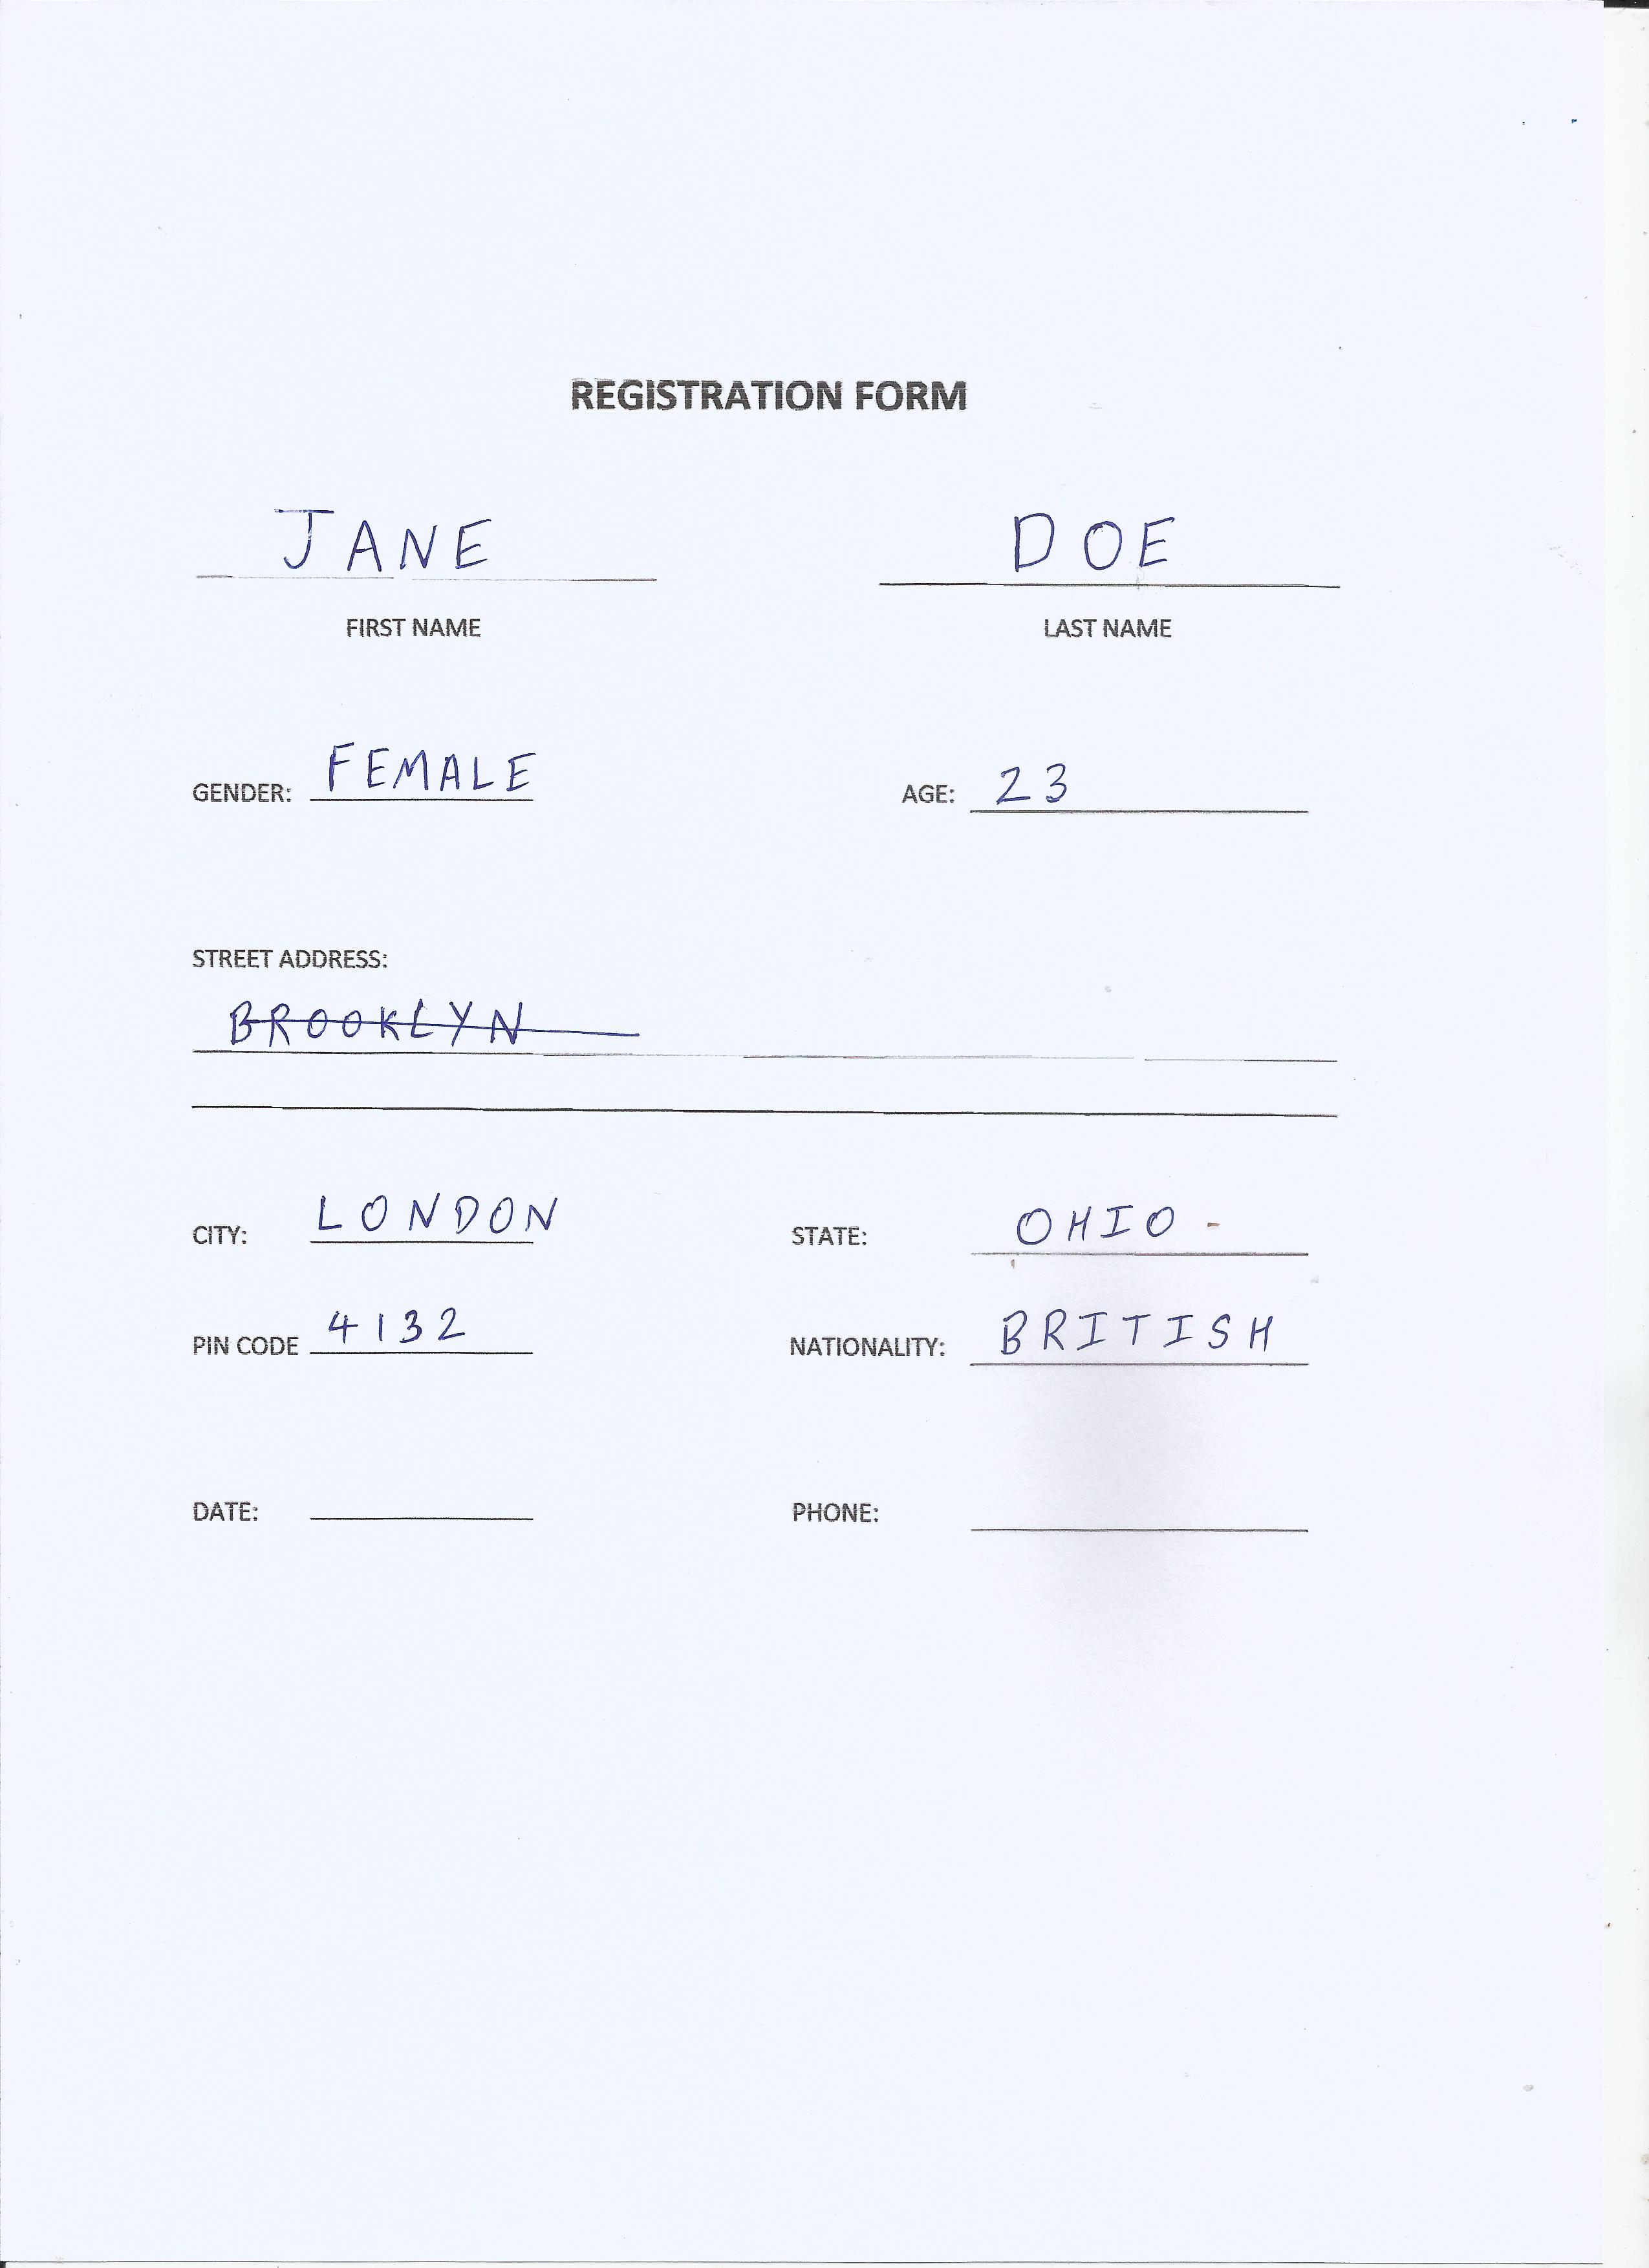 REGISTRATION FORM
JANE DOE
FIRST NAME LAST NAME
GENDER: FEMALE AGE: 23
STREET ADDRESS:
BROOKLYN
CITY: LONDON STATE: OHIO -
PIN CODE 4132 NATIONALITY: BRITISH
DATE: PHONE: